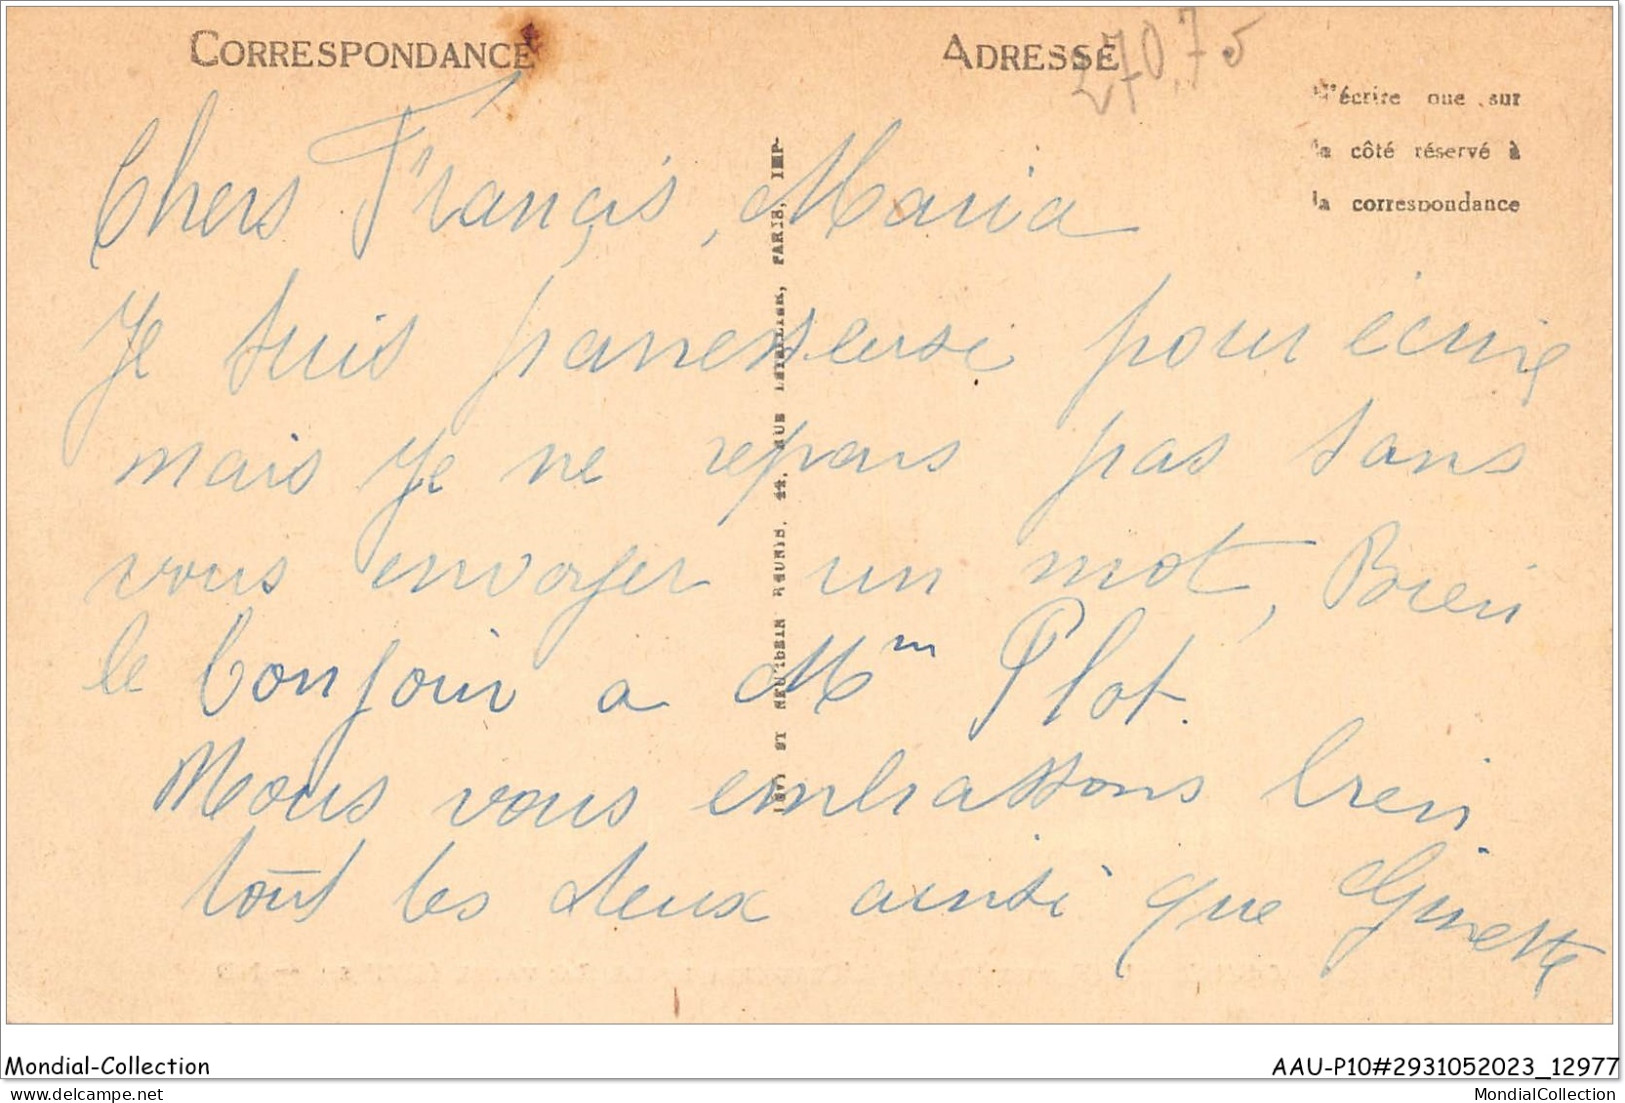 CORRESPONDANCE
ADRESSE
270.75
N'écrire que sur
le côté réservé à
la correspondance
Chers Françis, Maria
Je suis paresseuse pour écrire
mais je ne repars pas sans
vous envoyer un mot, Bien
le bonjour a Mm Plot.
Nous vous embrassons bien
tout les deux ainsi que Ginette
LEVY ET NEURDEIN RÉUNIS, 44, RUE LETELLIER, PARIS, IMP.
Mondial-Collection
AAU-P10#2931052023_12977
delcampe.net
MondialCollection